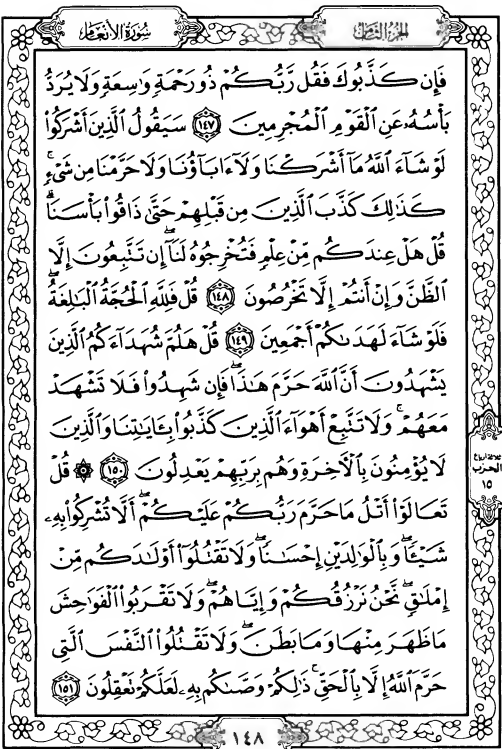 سُورَةُ الأَنْعَام
الجُزْءُ الثَّامِنُ
فَإِن كَذَّبُوكَ فَقُل رَّبُّكُمْ ذُو رَحْمَةٍ وَاسِعَةٍ وَلَا يُرَدُّ
بَأْسُهُۥ عَنِ ٱلْقَوْمِ ٱلْمُجْرِمِينَ ١٤٧ سَيَقُولُ ٱلَّذِينَ أَشْرَكُوا۟
لَوْ شَآءَ ٱللَّهُ مَآ أَشْرَكْنَا وَلَآ ءَابَآؤُنَا وَلَا حَرَّمْنَا مِن شَىْءٍ ۚ
كَذَٰلِكَ كَذَّبَ ٱلَّذِينَ مِن قَبْلِهِمْ حَتَّىٰ ذَاقُوا۟ بَأْسَنَا ۗ
قُلْ هَلْ عِندَكُم مِّنْ عِلْمٍ فَتُخْرِجُوهُ لَنَآ ۖ إِن تَتَّبِعُونَ إِلَّا
ٱلظَّنَّ وَإِنْ أَنتُمْ إِلَّا تَخْرُصُونَ ١٤٨ قُلْ فَلِلَّهِ ٱلْحُجَّةُ ٱلْبَٰلِغَةُ ۖ
فَلَوْ شَآءَ لَهَدَىٰكُمْ أَجْمَعِينَ ١٤٩ قُلْ هَلُمَّ شُهَدَآءَكُمُ ٱلَّذِينَ
يَشْهَدُونَ أَنَّ ٱللَّهَ حَرَّمَ هَٰذَا ۖ فَإِن شَهِدُوا۟ فَلَا تَشْهَدْ
مَعَهُمْ ۚ وَلَا تَتَّبِعْ أَهْوَآءَ ٱلَّذِينَ كَذَّبُوا۟ بِـَٔايَٰتِنَا وَٱلَّذِينَ
لَا يُؤْمِنُونَ بِٱلْءَاخِرَةِ وَهُم بِرَبِّهِمْ يَعْدِلُونَ ١٥٠ ۞ قُلْ
تَعَالَوْا۟ أَتْلُ مَا حَرَّمَ رَبُّكُمْ عَلَيْكُمْ ۖ أَلَّا تُشْرِكُوا۟ بِهِۦ
شَيْـًٔا ۖ وَبِٱلْوَٰلِدَيْنِ إِحْسَٰنًا ۖ وَلَا تَقْتُلُوٓا۟ أَوْلَٰدَكُم مِّنْ
إِمْلَٰقٍ ۖ نَّحْنُ نَرْزُقُكُمْ وَإِيَّاهُمْ ۖ وَلَا تَقْرَبُوا۟ ٱلْفَوَٰحِشَ
مَا ظَهَرَ مِنْهَا وَمَا بَطَنَ ۖ وَلَا تَقْتُلُوا۟ ٱلنَّفْسَ ٱلَّتِى
حَرَّمَ ٱللَّهُ إِلَّا بِٱلْحَقِّ ۚ ذَٰلِكُمْ وَصَّىٰكُم بِهِۦ لَعَلَّكُمْ تَعْقِلُونَ ١٥١
ثلاثة ارباع
الحزب
١٥
١٤٨